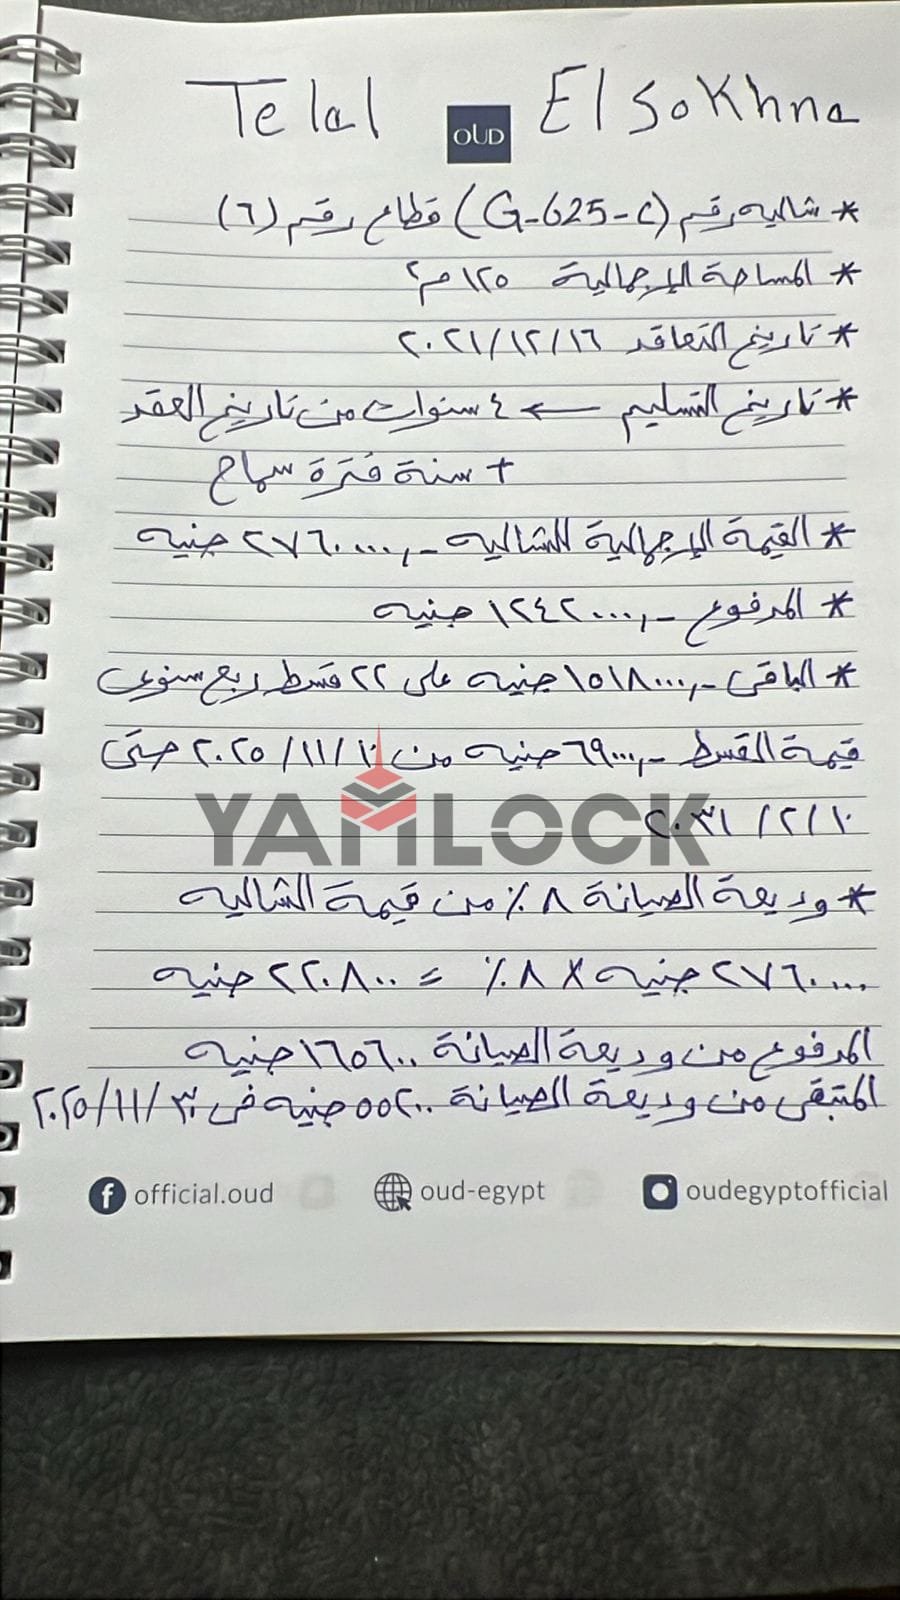 Telal El Sokhna
OUD
* شاليه رقم (G-625-C) قطاع رقم (٦)
* المساحة الإجمالية ١٢٥ م٢
* تاريخ التعاقد ٢٠٢١/١٢/١٦
* تاريخ التسليم ← ٤ سنوات من تاريخ العقد
+ سنة فترة سماح
* القيمة الإجمالية للشاليه -,٢٧٦٠٠٠٠ جنيه
* المدفوع -,١٢٤٢٠٠٠ جنيه
* الباقى -,١٥١٨٠٠٠ جنيه على ٢٢ قسط ربع سنوى
قيمة القسط -,٦٩٠٠٠ جنيه من ٢٠٢٥/١١/١٠ حتى
٢٠٣١/٢/١٠
YAMLOCK
* وديعة الصيانة ٨٪ من قيمة الشاليه
٢٧٦٠٠٠٠ جنيه X ٨٪ = ٢٢٠٨٠٠ جنيه
المدفوع من وديعة الصيانة ١٦٥٦٠٠ جنيه
المتبقى من وديعة الصيانة ٥٥٢٠٠ جنيه فى ٢٠٢٥/١١/٣٠
official.oud oud-egypt oudegyptofficial